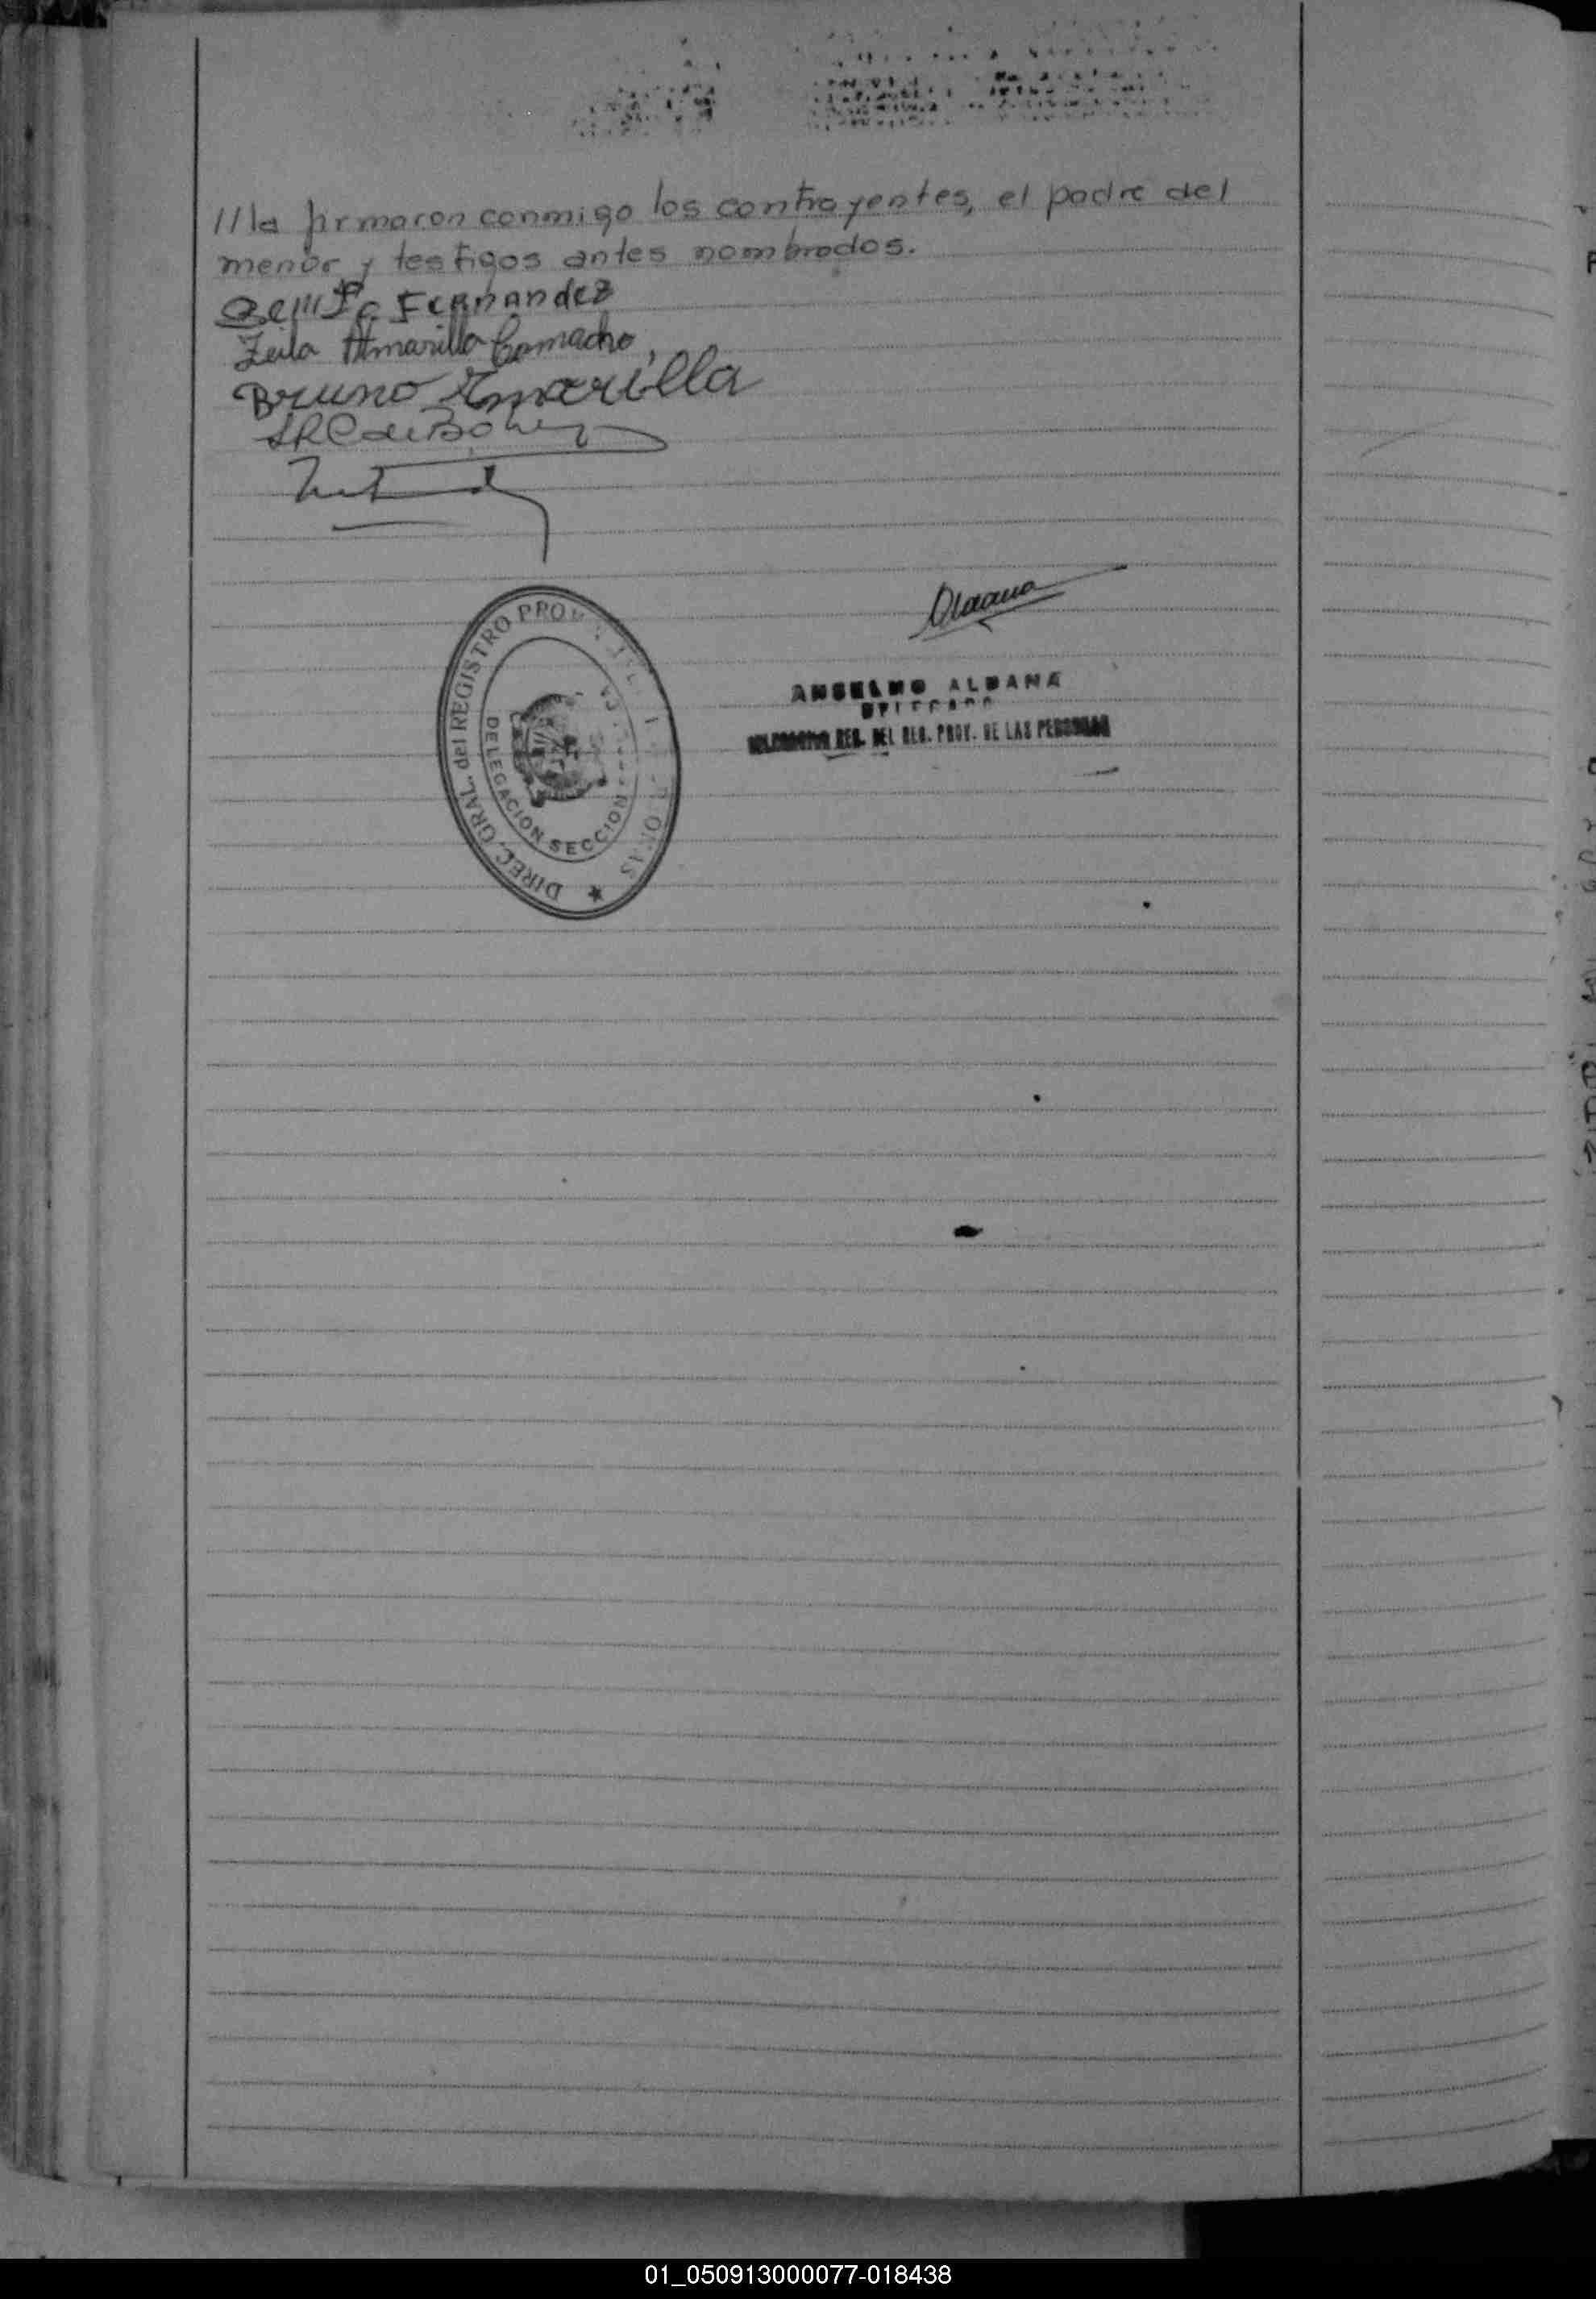 ///la firmaron conmigo los contrayentes, el padre del
menor y testigos antes nombrados.
Fernandez
Zeila Amarilla Camacho
Bruno Amarilla
DIREC. GRAL. del REGISTRO PROV
DELEGACION SECCION
ANSELMO ALDANA
DELEGADO
REG. DEL REG. PROV. DE LAS PERSONAS
01_050913000077-018438